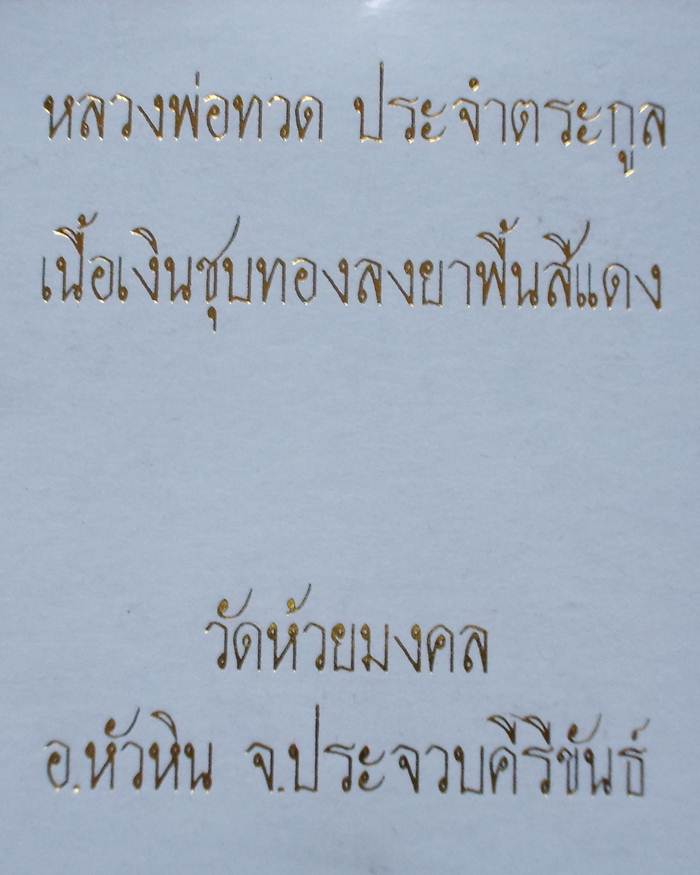 หลวงพ่อทวด ประจำตระกูล
เนื้อเงินชุบทองลงยาพื้นสีแดง
วัดห้วยมงคล
อ.หัวหิน จ.ประจวบคีรีขันธ์